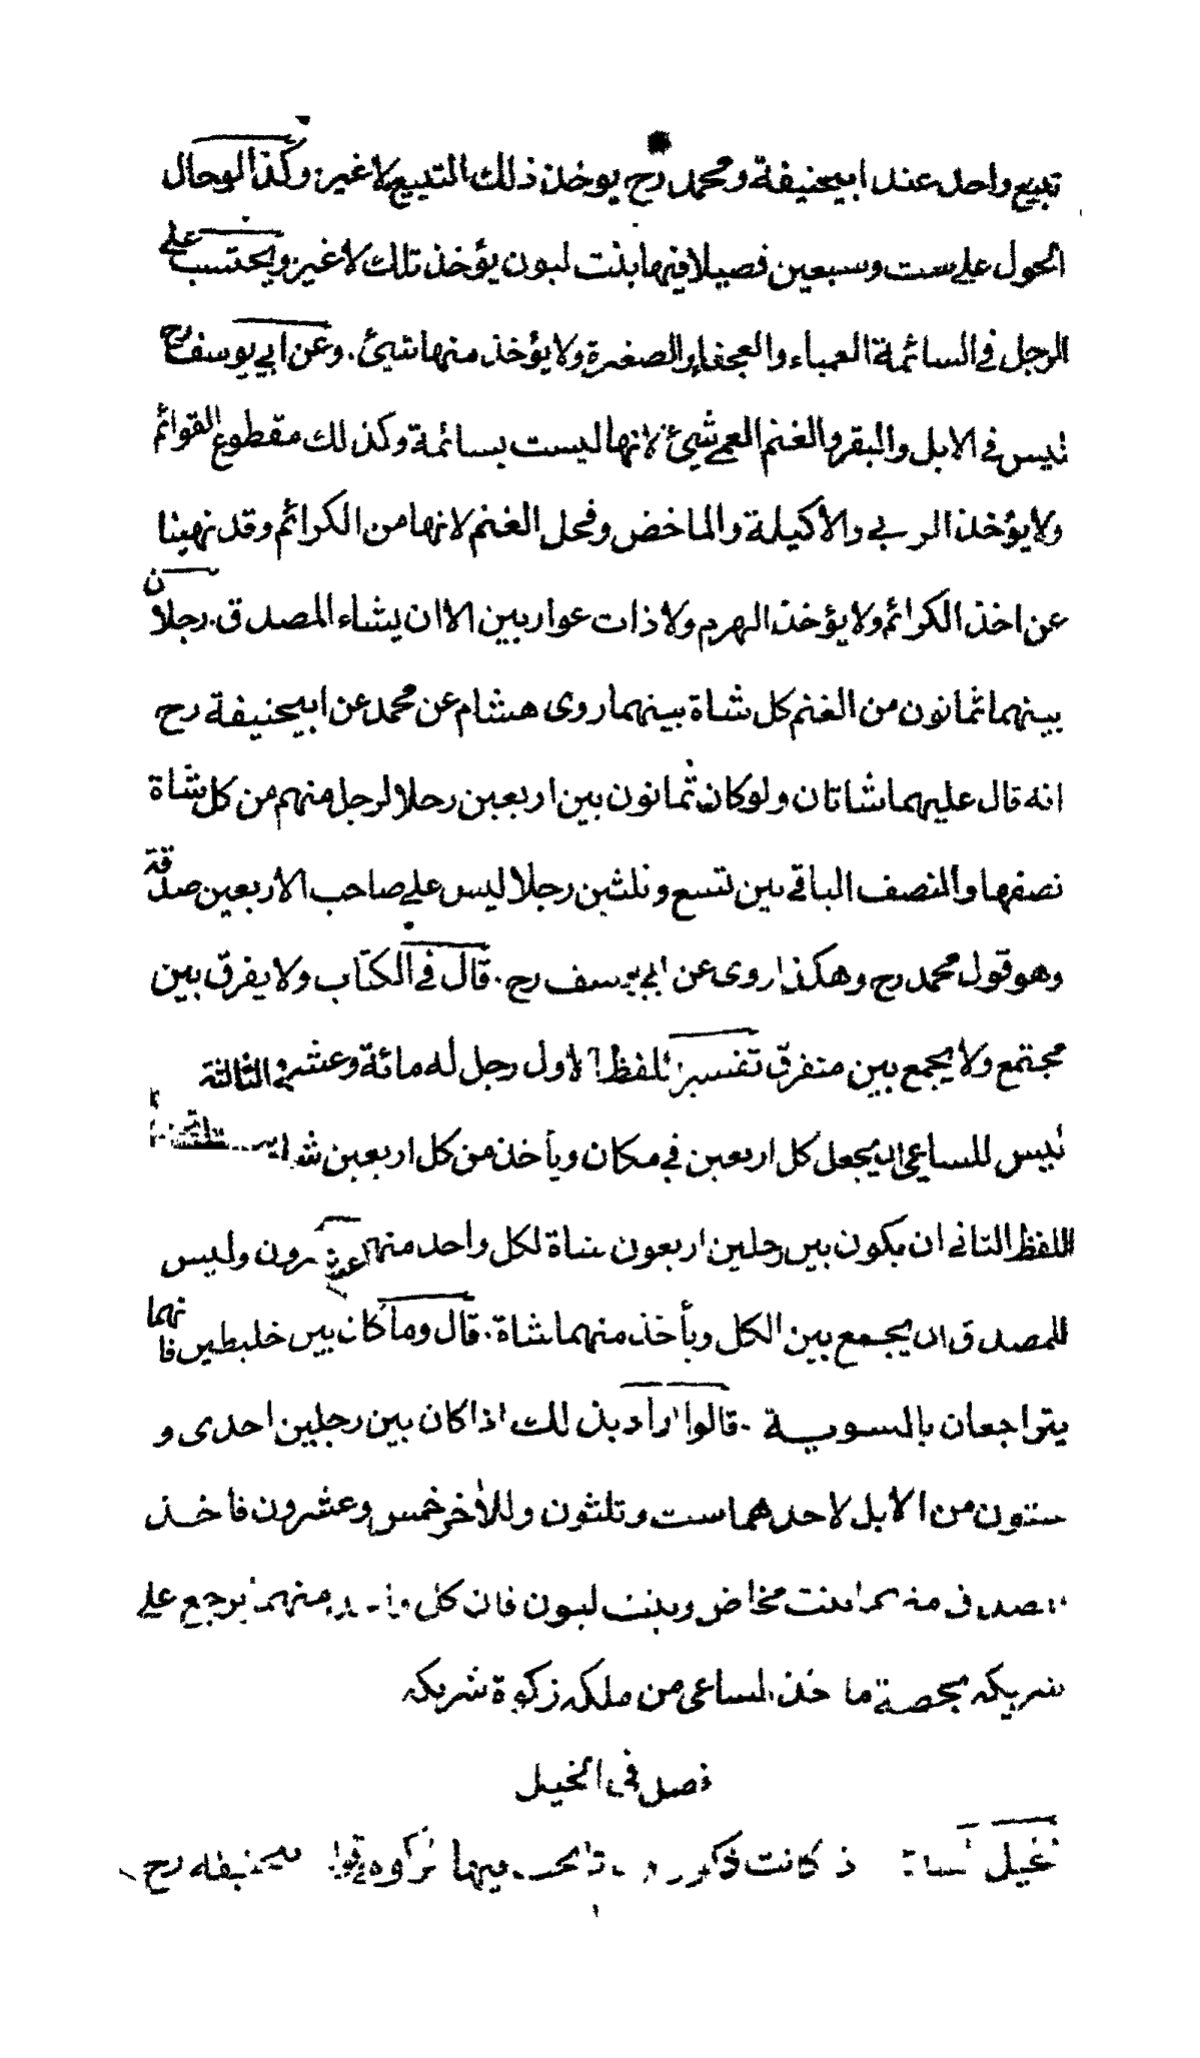 تبيع واحد عند ابيحنيفة ومحمد رح يوخذ ذلك التبيع لا غير وكذا لو حال
الحول على ست وسبعين فصيلا فيها بنت لبون يؤخذ تلك لا غير ويحتسب على
الرجل في السائمة العمياء والعجفاء والصغيرة ولا يؤخذ منها شيئ . وعن ابي يوسف رح
ليس في الابل والبقر والغنم العمى شيئ لانها ليست بسائمة وكذلك مقطوع القوائم
ولا يؤخذ الربي والاكيلة والماخض وفحل الغنم لانها من الكرائم وقد نهينا
عن اخذ الكرائم ولا يؤخذ الهرم ولا ذات عوار بين الا ان يشاء المصدق . رجلان
بينهما ثمانون من الغنم كل شاة بينهما روى هشام عن محمد عن ابيحنيفة رح
انه قال عليهما شاتان ولو كان ثمانون بين اربعين رجلا لرجل منهم من كل شاة
نصفها والنصف الباقي بين تسع وثلثين رجلا ليس على صاحب الاربعين صدقة
وهو قول محمد رح وهكذا روى عن ابي يوسف رح . قال في الكتاب ولا يفرق بين
مجتمع ولا يجمع بين متفرق تفسير اللفظ الاول رجل له مائة وعشرون
ليس للساعي ان يجعل كل اربعين في مكان ويأخذ من كل اربعين شاة
اللفظ الثاني ان يكون بين رجلين اربعون شاة لكل واحد منهما عشرون وليس
للمصدق ان يجمع بين الكل ويأخذ منهما شاة . قال وما كان بين خليطين فانهما
يتراجعان بالسوية . قالوا اراد بذلك اذا كان بين رجلين احدى و
ستون من الابل لاحدهما ست وثلثون وللآخر خمس وعشرون فاخذ
المصدق منهما بنت مخاض وبنت لبون فان كل واحد منهما يرجع على
شريكه بحصة ما اخذ الساعى من ملكه زكوة شريكه
فصل في الخيل
كانت ذكور فيها حنيفه رح